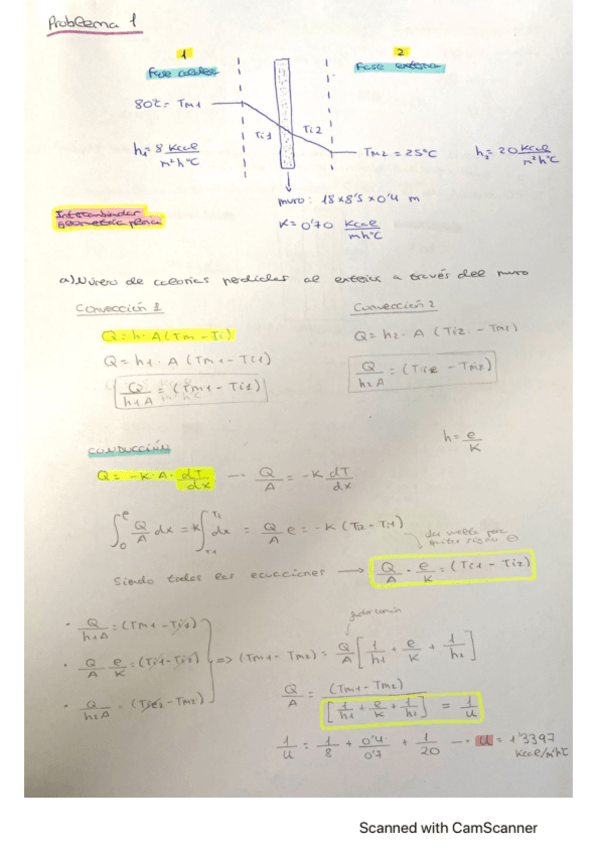 Problema 1
1
2
Fase caliente
Fase externa
80°C = Tm1
Ti1
Ti2
Tm2 = 25°C
h1 = 8 Kcal/m²h°C
h2 = 20 Kcal/m²h°C
muro: 18 x 8'5 x 0'4 m
K = 0'70 Kcal/mh°C
Intercambiador
geometría plana
a) Número de calorías perdidas al exterior a través del muro
Convección 1
Convección 2
Q = h · A (Tm - Ti)
Q = h2 · A (Ti2 - Tm1)
Q = h1 · A (Tm1 - Ti1)
Q/h1A = (Tm1 - Ti1)
Q/h2A = (Ti2 - Tm2)
h = e/K
CONDUCCIÓN
Q = -K · A · dT/dx — Q/A = -K dT/dx
∫₀ᵉ Q/A dx = K ∫ dx = Q/A e = -K (Ti2 - Ti1)
dar vuelta para
quitar signo ⊖
Siendo todas las ecuaciones → Q/A · e/K = (Ti1 - Ti2)
factor común
· Q/h1A = (Tm1 - Ti1)
· Q/A e/K = (Ti1 - Ti2) => (Tm1 - Tm2) = Q/A [1/h1 + e/K + 1/h2]
· Q/h2A = (Ti2 - Tm2)
Q/A = (Tm1 - Tm2)/[1/h1 + e/K + 1/h2] = 1/u
1/u = 1/8 + 0'4/0'7 + 1/20 — u = 1'3397
Kcal/m²h°C
Scanned with CamScanner